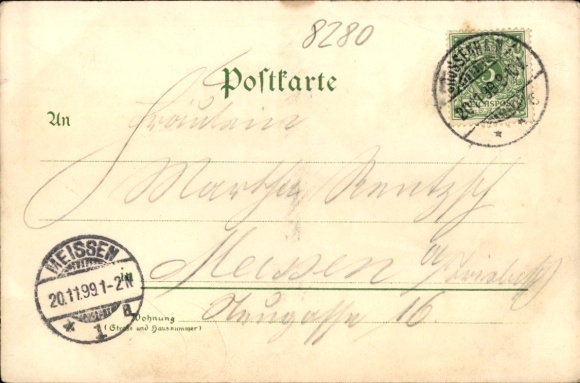 8280
Postkarte
GROSSENHAIN
20.11.99
5
REICHSPOST
An Fräulein
Martha Rentzsch
Meissen a/
Neugasse 16.
Wohnung
(Straße und Hausnummer)
MEISSEN
20.11.99.1-2N
* 1 a